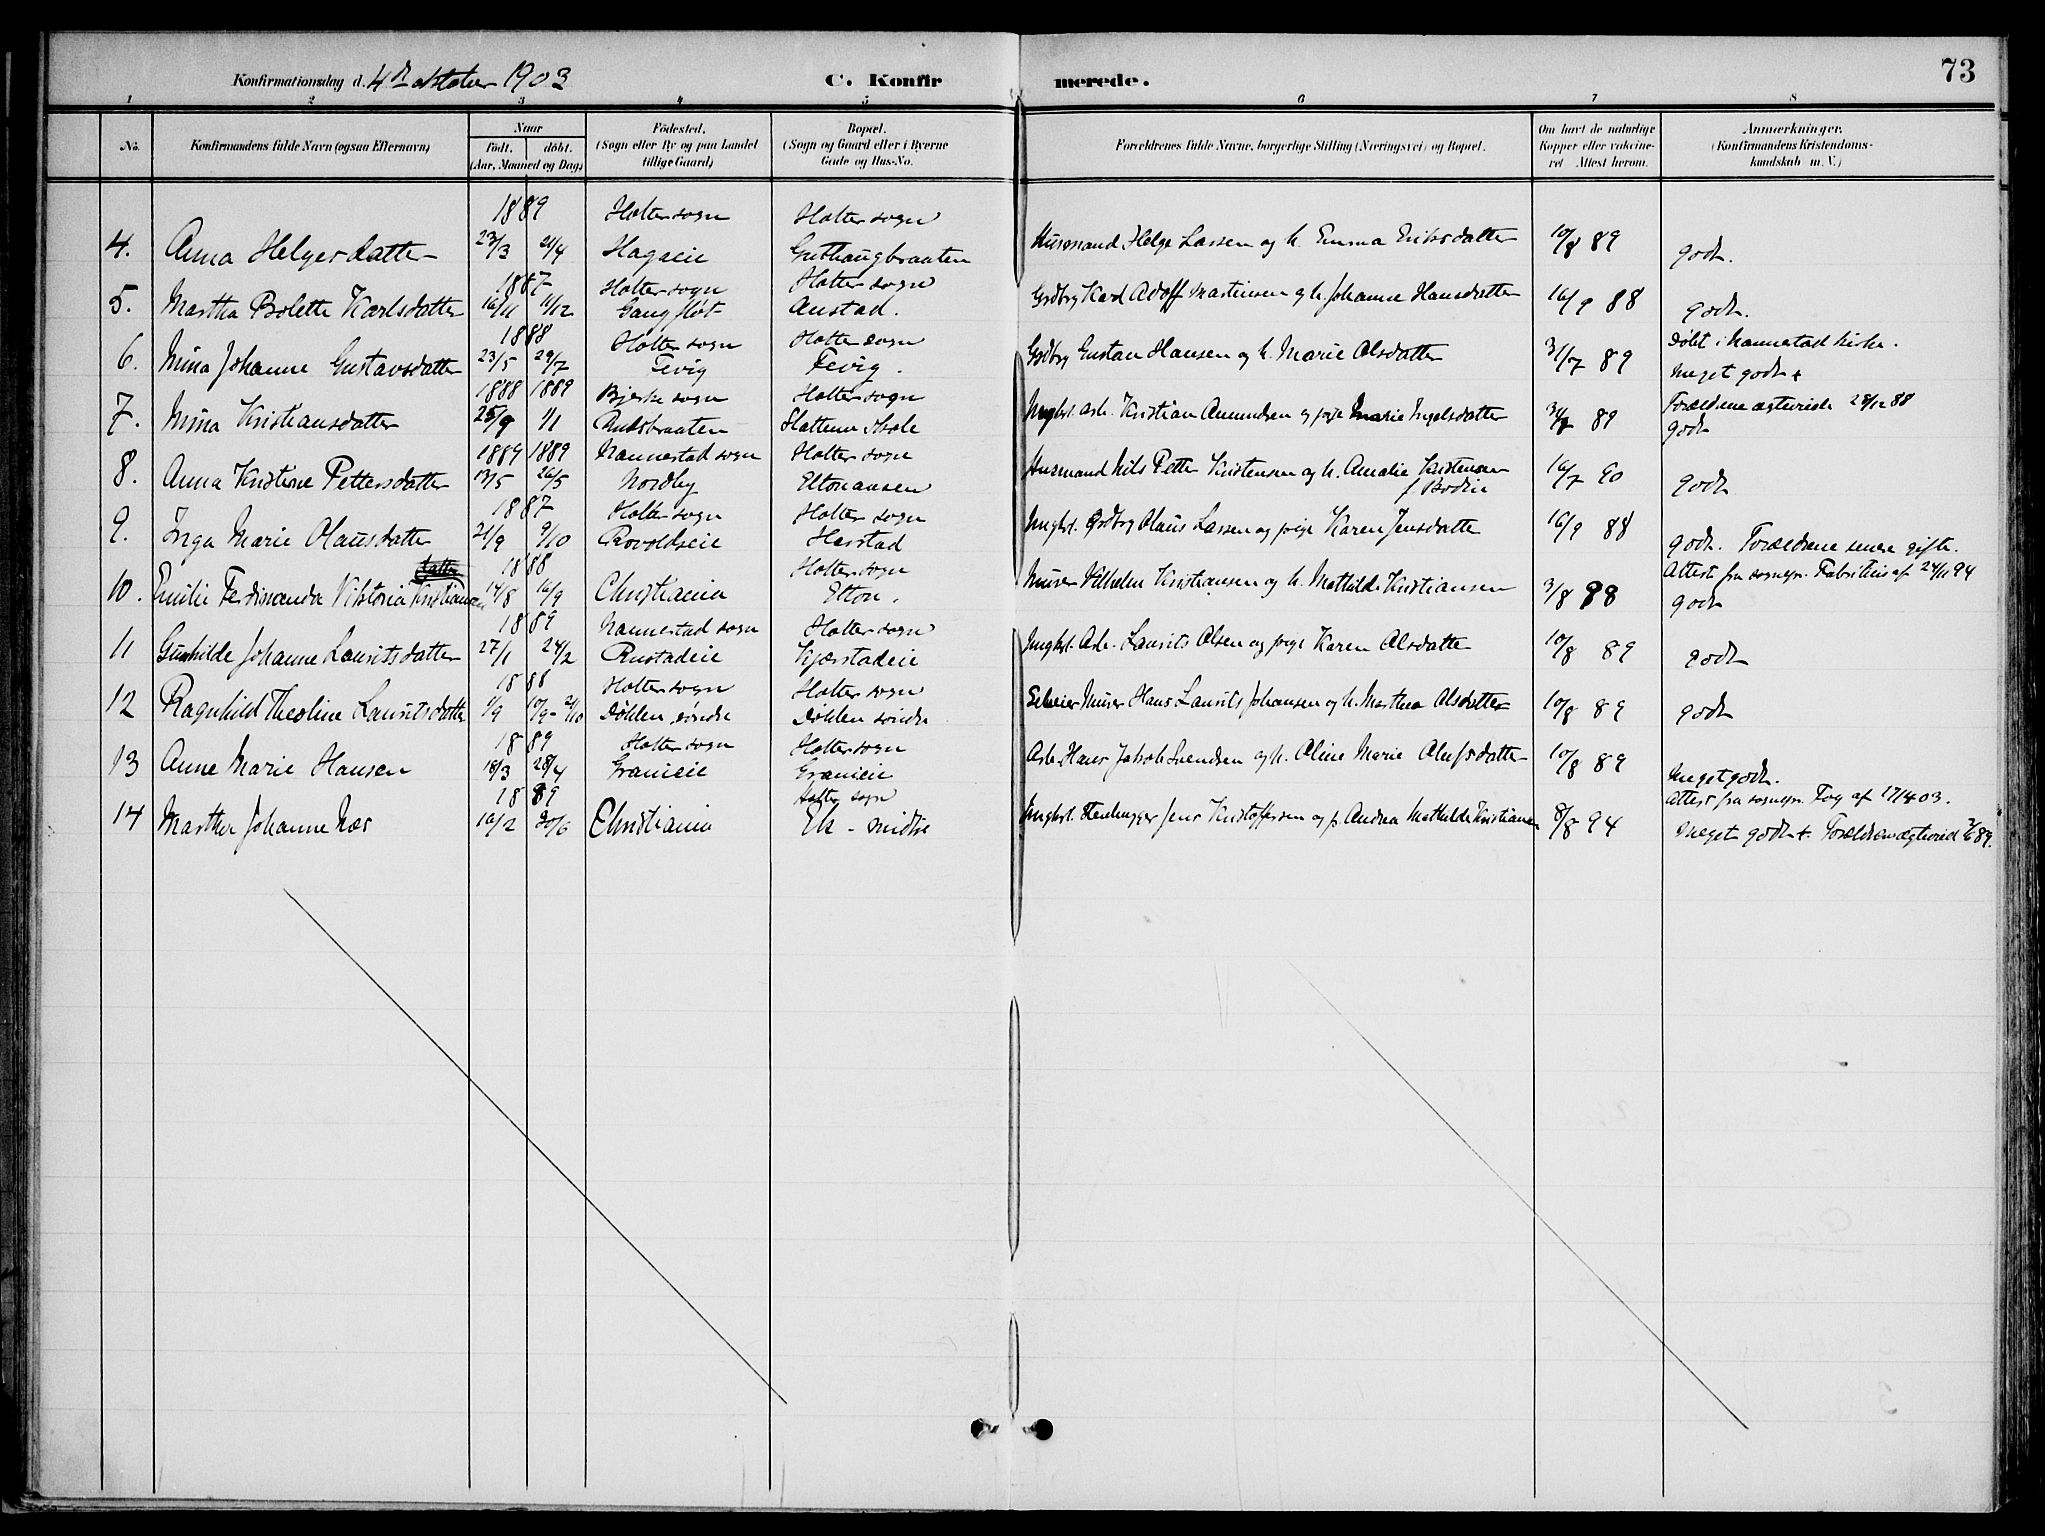 Konfirmationsdag d. 4de oktober 1903 C. Konfirmerede. 73
1 2 3 4 5 6 7 8
No. Konfirmandens fulde Navn (ogsaa Efternavn) Naar födt. döbt. (Aar, Maaned og Dag) Födested. (Sogn eller By og paa Landet tillige Gaard) Bopæl. (Sogn og Gaard eller i Byerne Gade og Hus-No. Forældrenes fulde Navne, borgerlige Stilling (Næringsvei) og Bopæl. Om havt de naturlige Kopper eller vakcineret Attest herom. Anmærkninger. (Konfirmandens Kristendomskundskab m. V.)
1889 Holter sogn Holter sogn
4. Anna Helgesdatter 23/3 21/4 Hagaeie Guthaugbraaten Husmand Helge Larsen og h. Emma Eriksdatter 10/8 89 godt.
1887 Holter sogn Holter sogn
5. Martha Bolette Karlsdatter 16/11 11/12 Gangfløt Austad. Grdbrg Karl Adolf Martinsen og h. Johanne Hansdatter 16/9 88 godt.
1888 Holter sogn Holter sogn Døbt i Nannestad kirke.
6. Mina Johanne Gustavsdatter 23/5 29/7 Tevig Tevig. Grdbrg Gustav Hansen og h. Marie Olsdatter 31/7 89 meget godt +
1888 1889 Bjerke sogn Holter sogn Forældrene ægteviede 28/12 88
7. Mina Kristiansdatter 25/9 1/1 Slattum skole Ungkl. arb. Kristian Amundsen og pige Marie Ingelsdatter 89 godt
1889 1889 Nannestad sogn Holter sogn
8. Anna Kristine Pettersdatter 13/5 26/5 Nordby Eltonaasen Husmand Nils Petter Kristensen og h. Amalie Kristensen f. Bodin 16/7 90 godt
1887 Holter sogn Holter sogn
9. Inga Marie Olausdatter 21/9 9/10 Rovoldseie Harstad Ungkl. Grdbrg Olaus Larsen og pige Karen Jensdatter 16/9 88 godt. Forældrene senere gifte.
datter 1888 Holter sogn Attest fra sognepr. Fabritius af 24/11 94
10. Emilie Ferdinanda Viktoria Kristiansen 14/8 16/9 Christiania Elton. Murer Vilhelm Kristiansen og h. Mathilde Kristiansen 3/8 98 godt
1889 Nannestad sogn Holter sogn
11 Gunhilde Johanne Lauritsdatter 27/1 24/2 Rustadeie Kjærstadeie Ungkl. Arb. Laurits Olsen og pige Karen Olsdatter 10/8 89 godt
1888 Holter sogn Holter sogn
12 Ragnhild Theoline Lauritsdatter 1/9 10/9 - 21/10 Døhlen søndre Døhlen søndre Selveier Murer Hans Laurits Johansen og h. Marthea Olsdatter 10/8 89 godt
1889 Holter sogn Holter sogn
13 Anne Marie Hansen 18/3 28/4 Granieie Granieie Arb. Hans Jakob Svendsen og h. Oline Marie Olufsdatter 10/8 89 meget godt.
1889 Holter sogn Attest fra sognepr. Fog af 17/4 03.
14 Marthe Johanne Næs 16/2 30/6 Christiania Ek - midtre Ungkl. Stenhugger Jens Kristoffersen og p. Andrea Mathilde Kristiansen 8/8 94 meget godt +. Forældrene ægteviet 89.